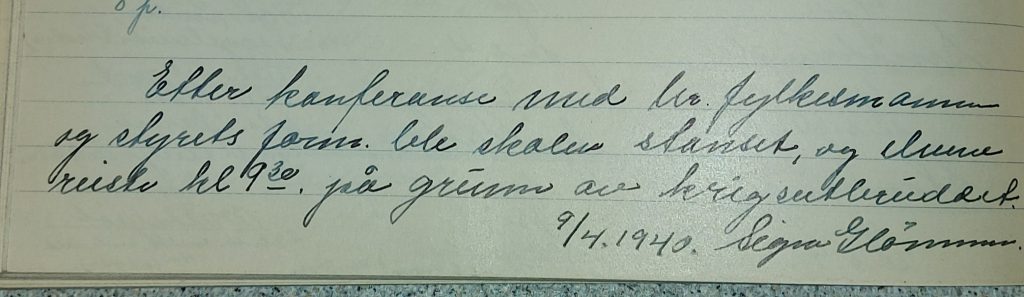 8 p.
Efter konferanse med hr. fylkesmannen
og styrets form. ble skolen stanset, og elevene
reiste kl 9³⁰. på grunn av krigsutbruddet.
9/4. 1940. Signe